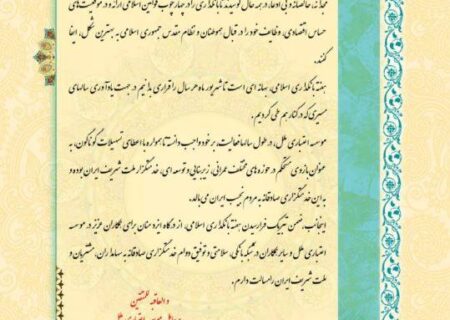 مجدانه، خالصانه و بی ادعا، در همه حال کوشیدند تا بانکداری را در چهارچوب قوانین اسلامی ارائه و در موقعیت‌های
حساس اقتصادی، وظایف خود را در قبال هموطنان و نظام مقدس جمهوری اسلامی به بهترین شکل، ایفا
کنند.
هفته بانکداری اسلامی، بهانه ای است تا شهریور ماه هر سال را قراری بدانیم در جهت یادآوری سالهای
مسیری که در کنار هم طی کردیم.
موسسه اعتباری ملل، در طول سالها فعالیت، بر خود واجب دانسته تا همواره با اعطای تسهیلات گوناگون، به
عنوان بازوی مستحکم در حوزه های مختلف عمرانی، زیربنایی و توسعه ای، خدمتگزار ملت شریف ایران بوده و
به این خدمتگزاری صادقانه به مردم نجیب ایران می بالد.
اینجانب، ضمن تبریک فرارسیدن هفته بانکداری اسلامی، از درگاه ایزد منان برای همکاران عزیز در موسسه
اعتباری ملل و سایر همکاران در شبکه بانکی، سلامتی و توفیق دوام خدمتگزاری صادقانه به سهامداران، مشتریان و
ملت شریف ایران را مسالت دارم.
و العاقبه للمتقین